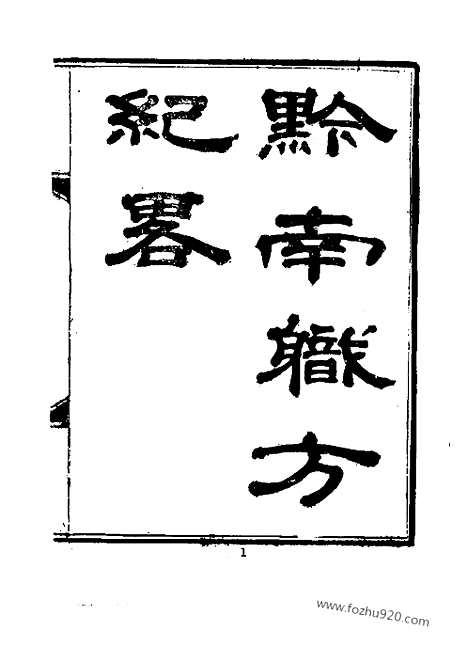 黔南軄方
紀畧
1
www.fozhu920.com